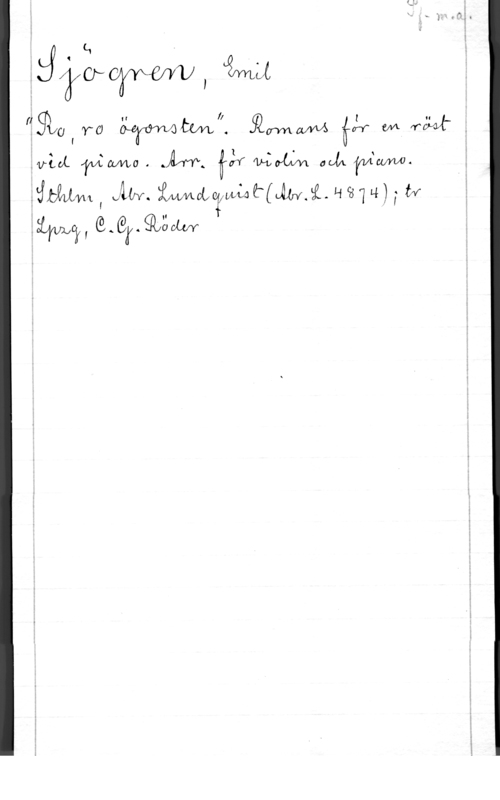 Sjögren, Emil
"Ro, ro ögonsten". Romans för en röst
vid piano. Arr. för violin och piano.
Sthlm, Abr. Lundquist (Abr.L. 4874); tr
Lpzg, C.G. Röder